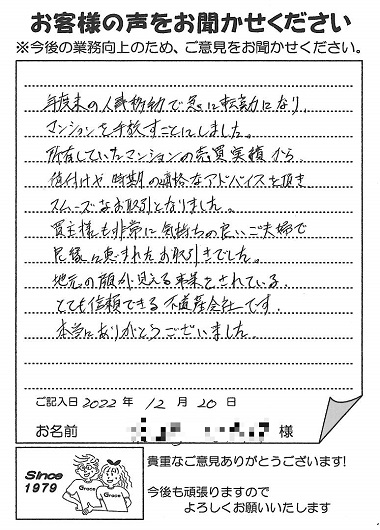 お客様の声をお聞かせください
※今後の業務向上のため、ご意見をお聞かせください。
年度末の人事移動で急に転勤になり、
マンションを手放すことにしました。
所有していたマンションの売買実績から、
値付けや時期の適格なアドバイスを頂き
スムーズなお取引となりました。
買主様も非常に気持ちの良いご夫婦で
良縁に恵まれたお取引きでした。
地元の顔が見える事業をされている、
とても信頼できる不動産会社です。
本当にありがとうございました。
ご記入日 2022 年 12 月 20 日
お名前 様
Since
1979
Grace
Grace
貴重なご意見ありがとうございます!
今後も頑張りますので
よろしくお願いいたします